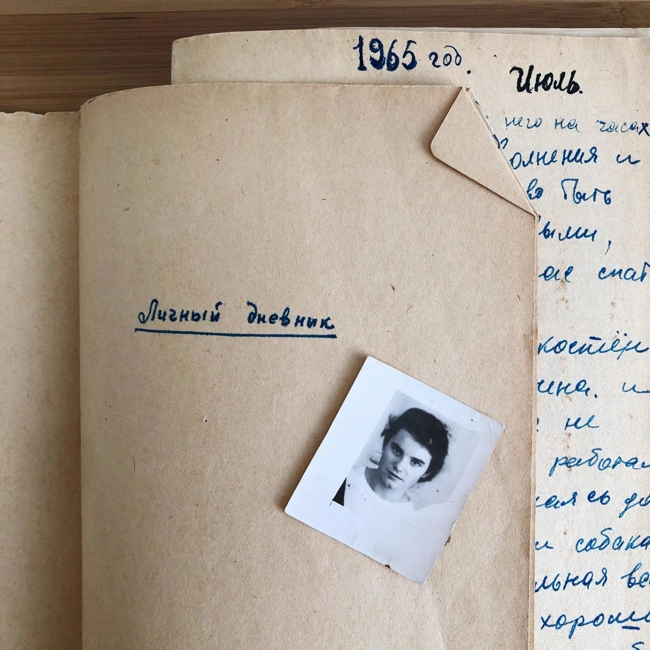 1965 год.
Июль.
него на часах
олнения и
во быть
ыми,
ас спат
Личный дневник
костёр
ина. и
не
работал
ась до
и собака
льная ве
хорошо